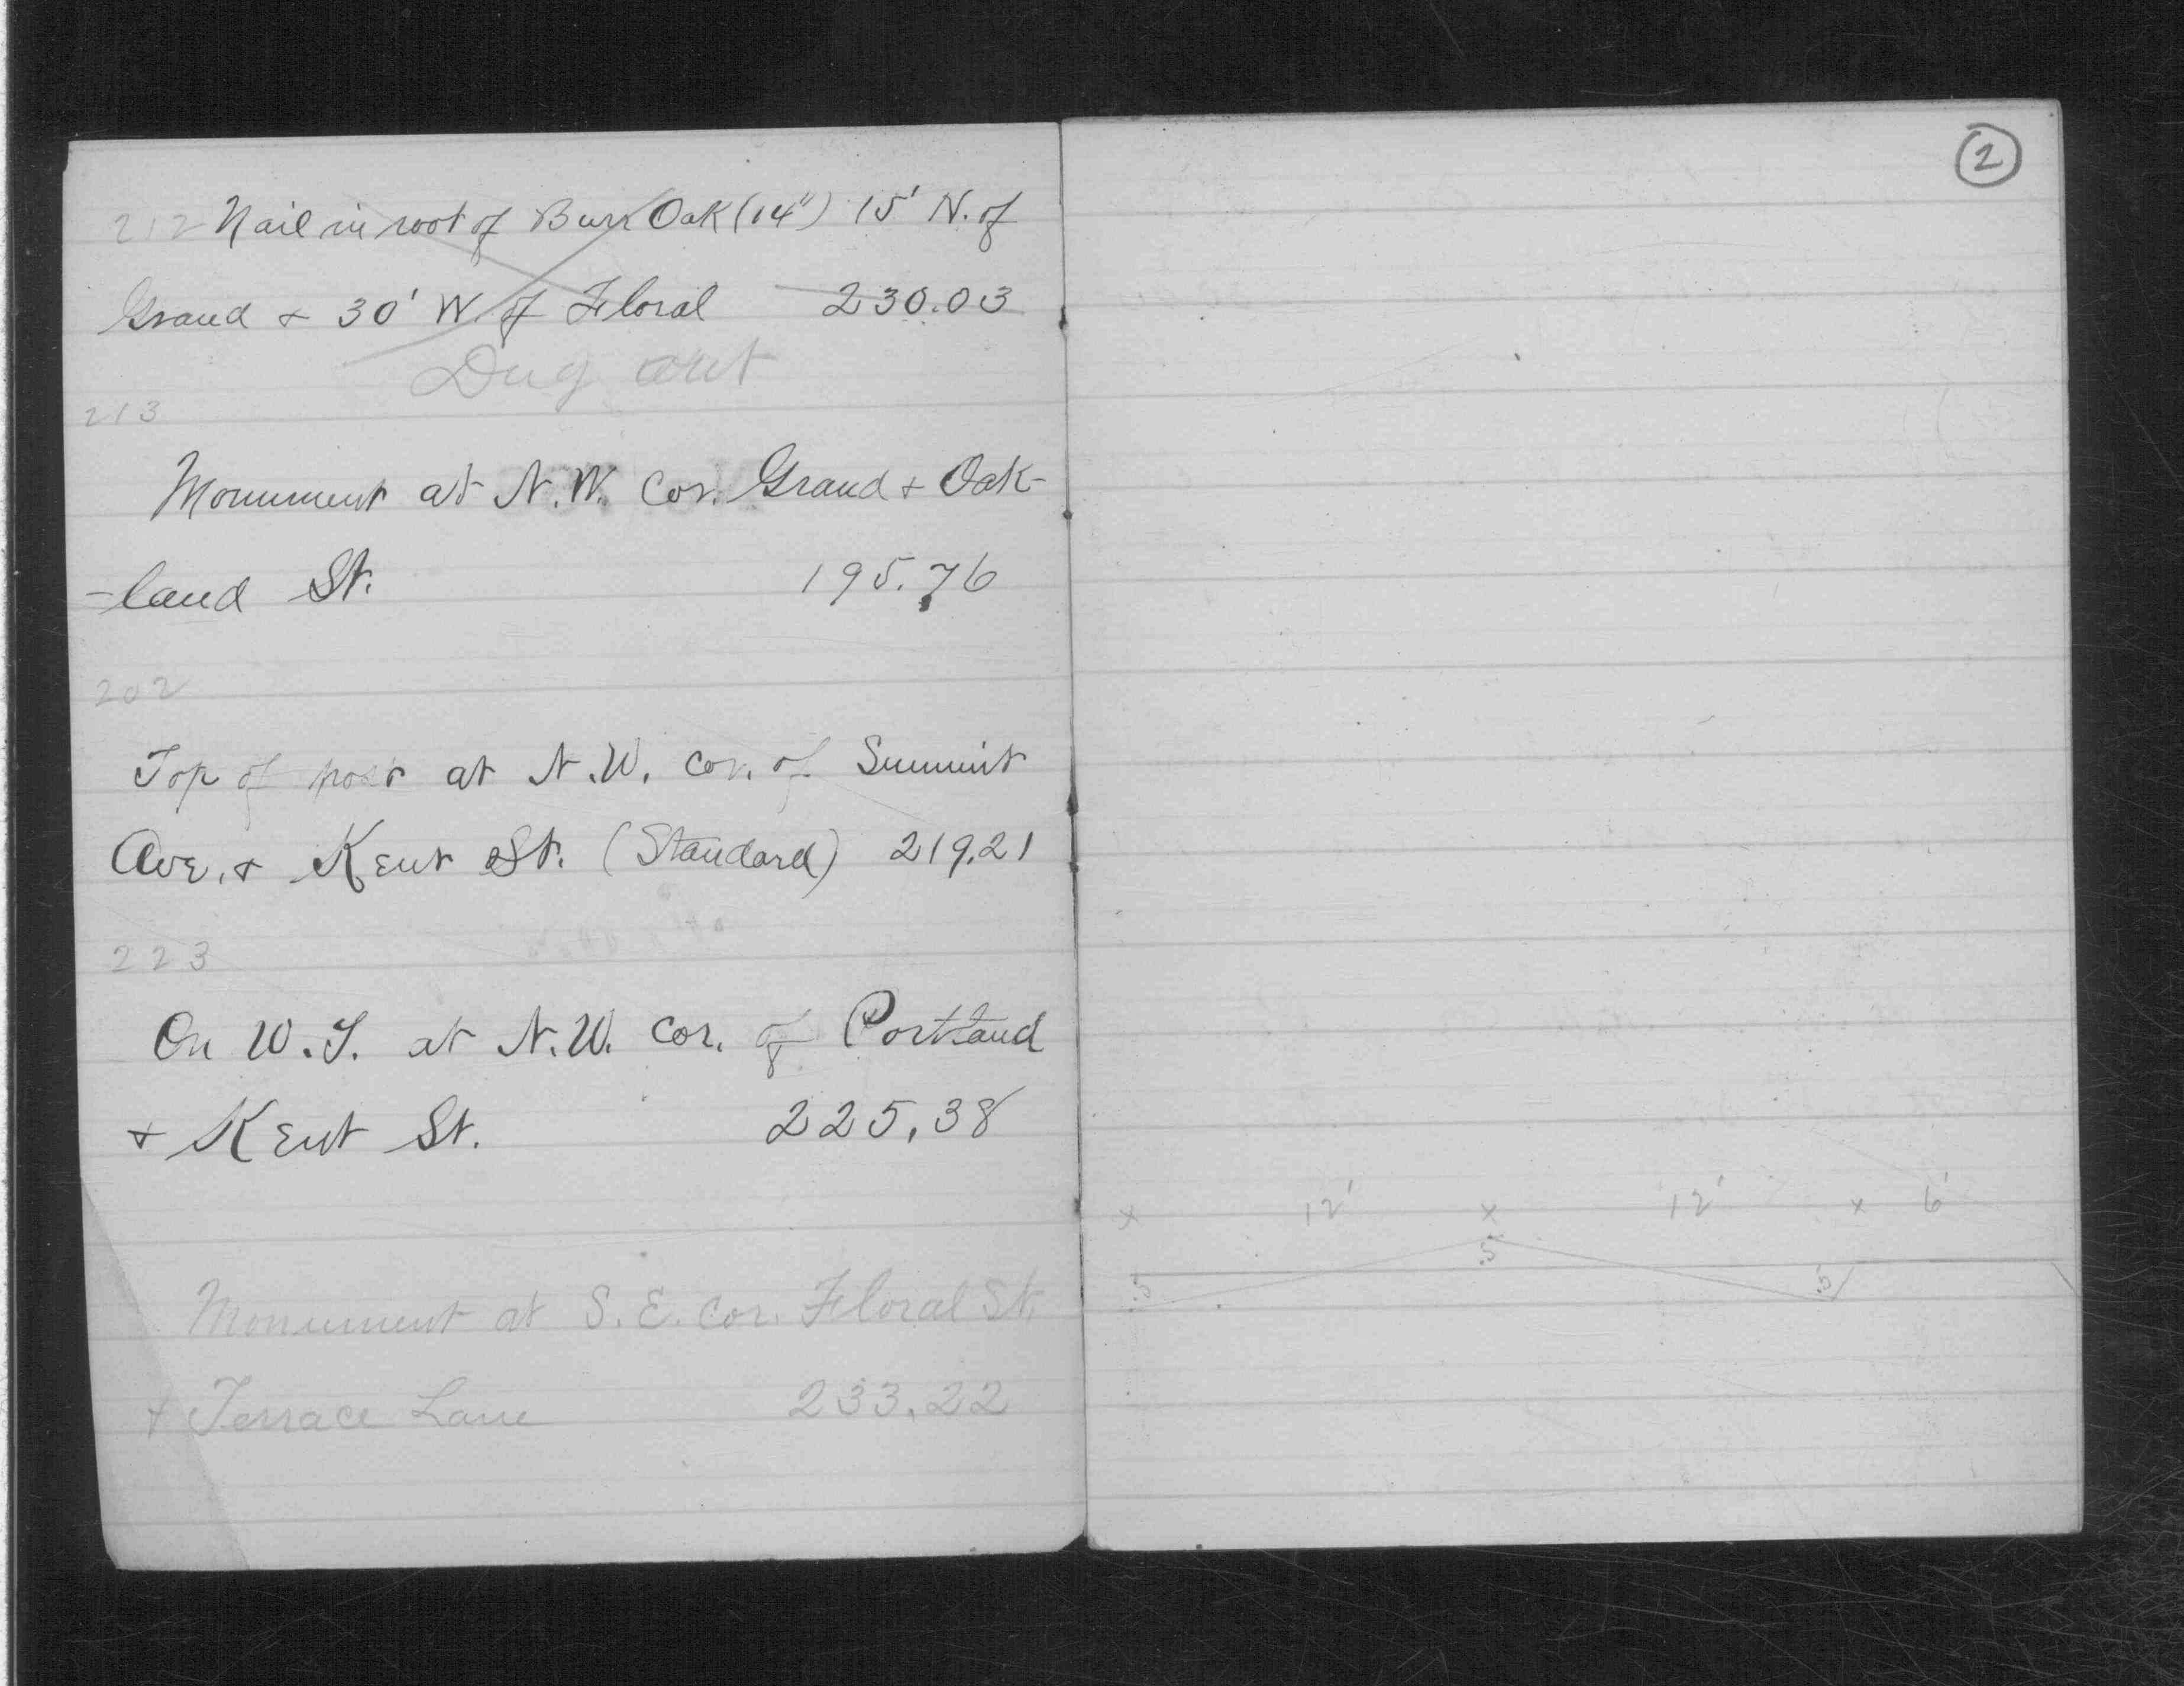 212 Nail in root of Burr Oak (14") 15' N. of
Grand + 30' W. of Floral 230.03
Dug out
213
Monument at N.W. Cor. Grand + Oak-
-land St. 195.76
202
Top of post at N.W. cor. of Summit
Ave. + Kent St. (Standard) 219.21
223
On W.T. at N.W. cor. of Portland
+ Kent St. 225.38
Monument at S.E. cor. Floral St.
+ Terrace Lane 233.22
2
x 12' x 12' x 6'
.5
.5 .5